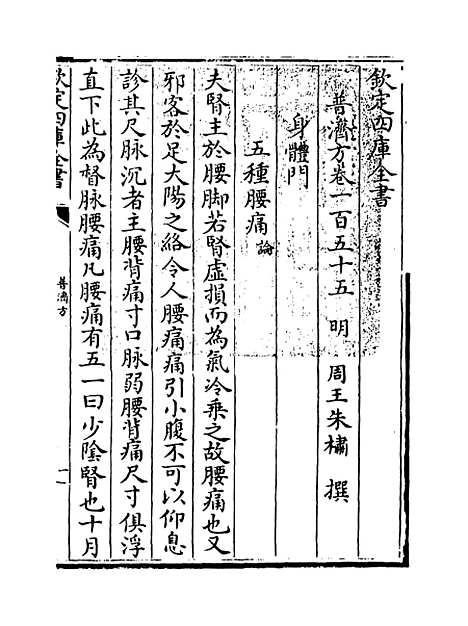 欽定四庫全書
普濟方卷一百五十五 明 周王朱橚 撰
身體門
五種腰痛論
夫腎主於腰脚若腎虛損而為氣冷乗之故腰痛也又
邪客於足太陽之絡令人腰痛痛引小腹不可以仰息
診其尺脉沉者主腰背痛寸口脉弱腰背痛尺寸俱浮
直下此為督脉腰痛凡腰痛有五一曰少陰腎也十月
欽定四庫全書
普濟方
一